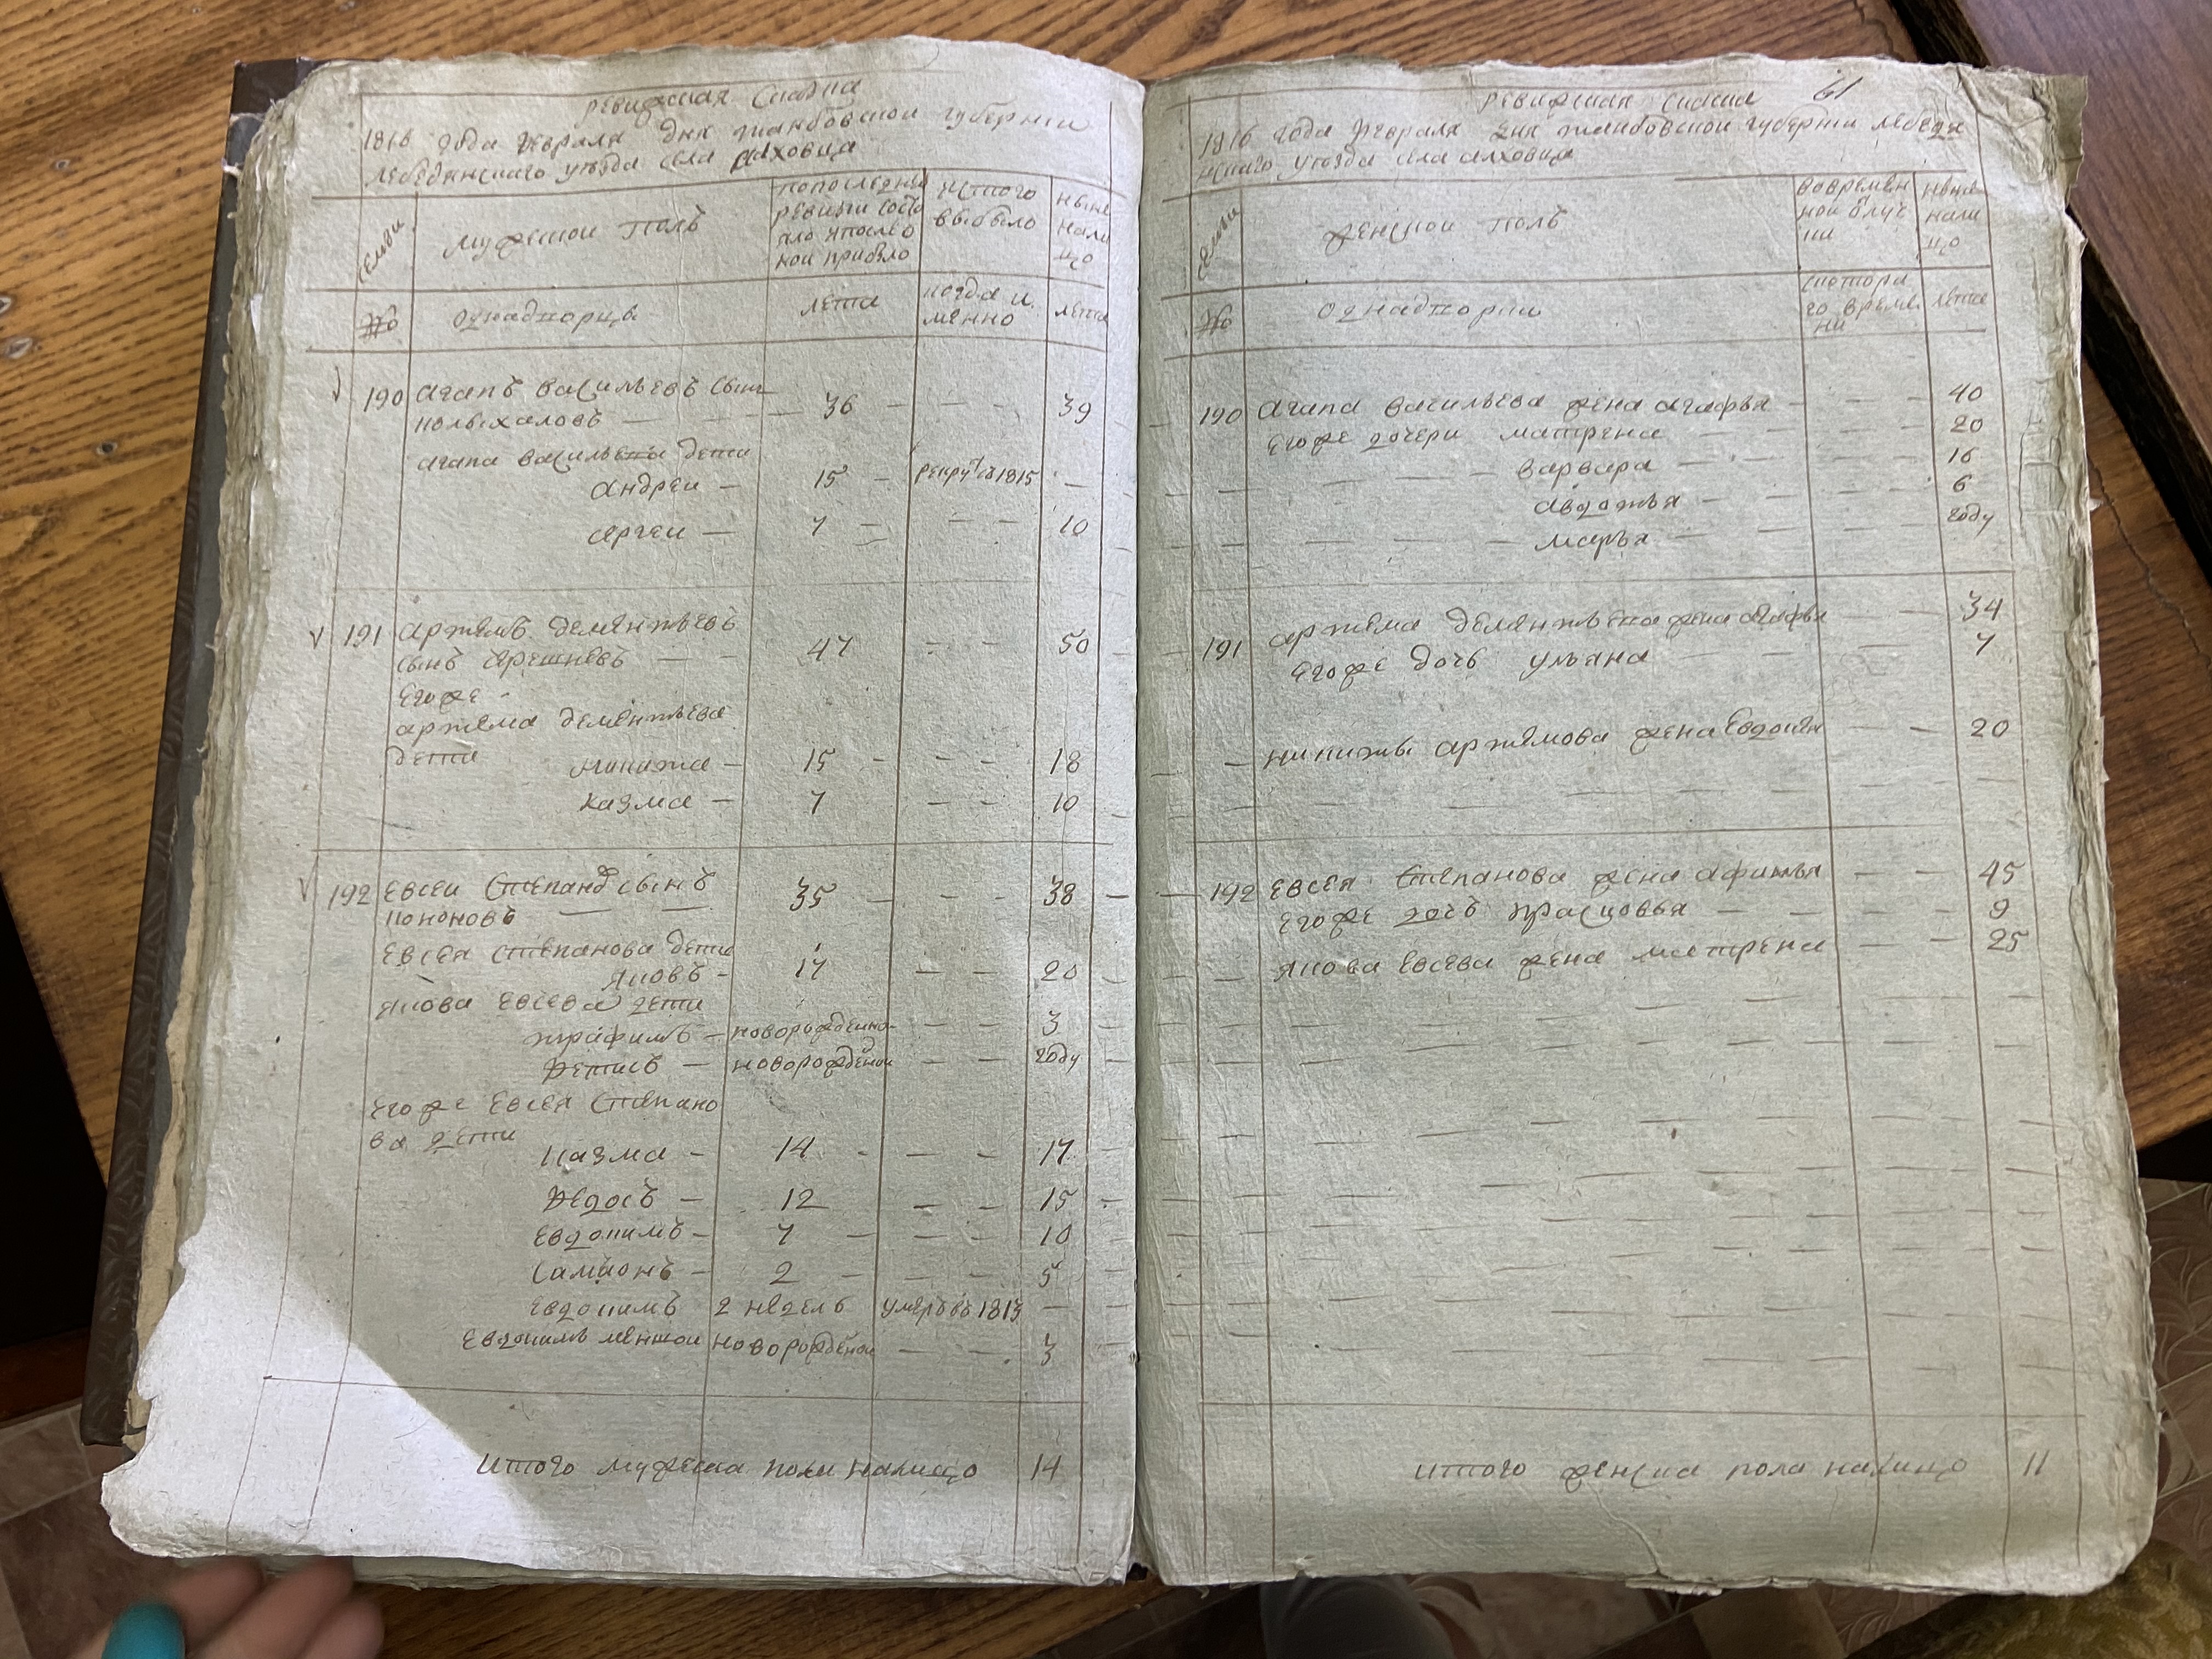 ревижская скаска
1816 года февраля дня танбовскои губернии
лебедянскаго уезда села
семьи
мужескои полъ
попоследнеи ревизии состояло ипосле онои прибыло
исTого выбыло
ныне налицо
№
однадворцы
лета
когда и менно
лета
190 агапъ васильевъ сынъ
колыхаловъ — 36 — — 39
агапа васильева дети
андреи — 15 — рекрут въ 1815 —
сергеи — 7 — — — 10
191 артемъ дементьевъ
сынъ — — 47 — — 50
егоже
артема дементьева
дети
никита — 15 — — — 18
казма — 7 — — 10
192 евсеи степановъ сынъ
кононовъ — — 35 — — — 38
евсея степанова дети
яковъ — 17 — — 20
якова евсева дети
трафимъ — новорожденно — — 3
фетисъ — новорожденои — — году
егоже евсея степано
ва дети
казма — 14 — — — 17
федосъ — 12 — — 15
евдокимъ — 7 — — — 10
самионъ — 2 — — — 5
евдокимъ 2 неделъ умеръ въ 1813 —
евдокимъ меншои новорожденои — — 3
итого мужеска пола налицо 14
ревижская скаска 61
1816 года февраля дня танбовскои губернии лебедя
нскаго уезда села
семьи
женскои полъ
вовремен нои
ныне налицо
№
однадворки
скотора го време ни
лета
190 агапа васильева жена агафья — — — 40
егоже дочери матрена — — — 20
— варвара — — — 16
авдотья — — — 6
марья — — — году
191 артема дементьева жена агафья — — 34
егоже дочь ульяна — — — 7
— никиты артемова жена евдокия — — 20
192 евсея степанова жена афимья — — 45
егоже дочь прасковья — — — 9
якова евсева жена матрена — — 25
итого женска пола налицо 11